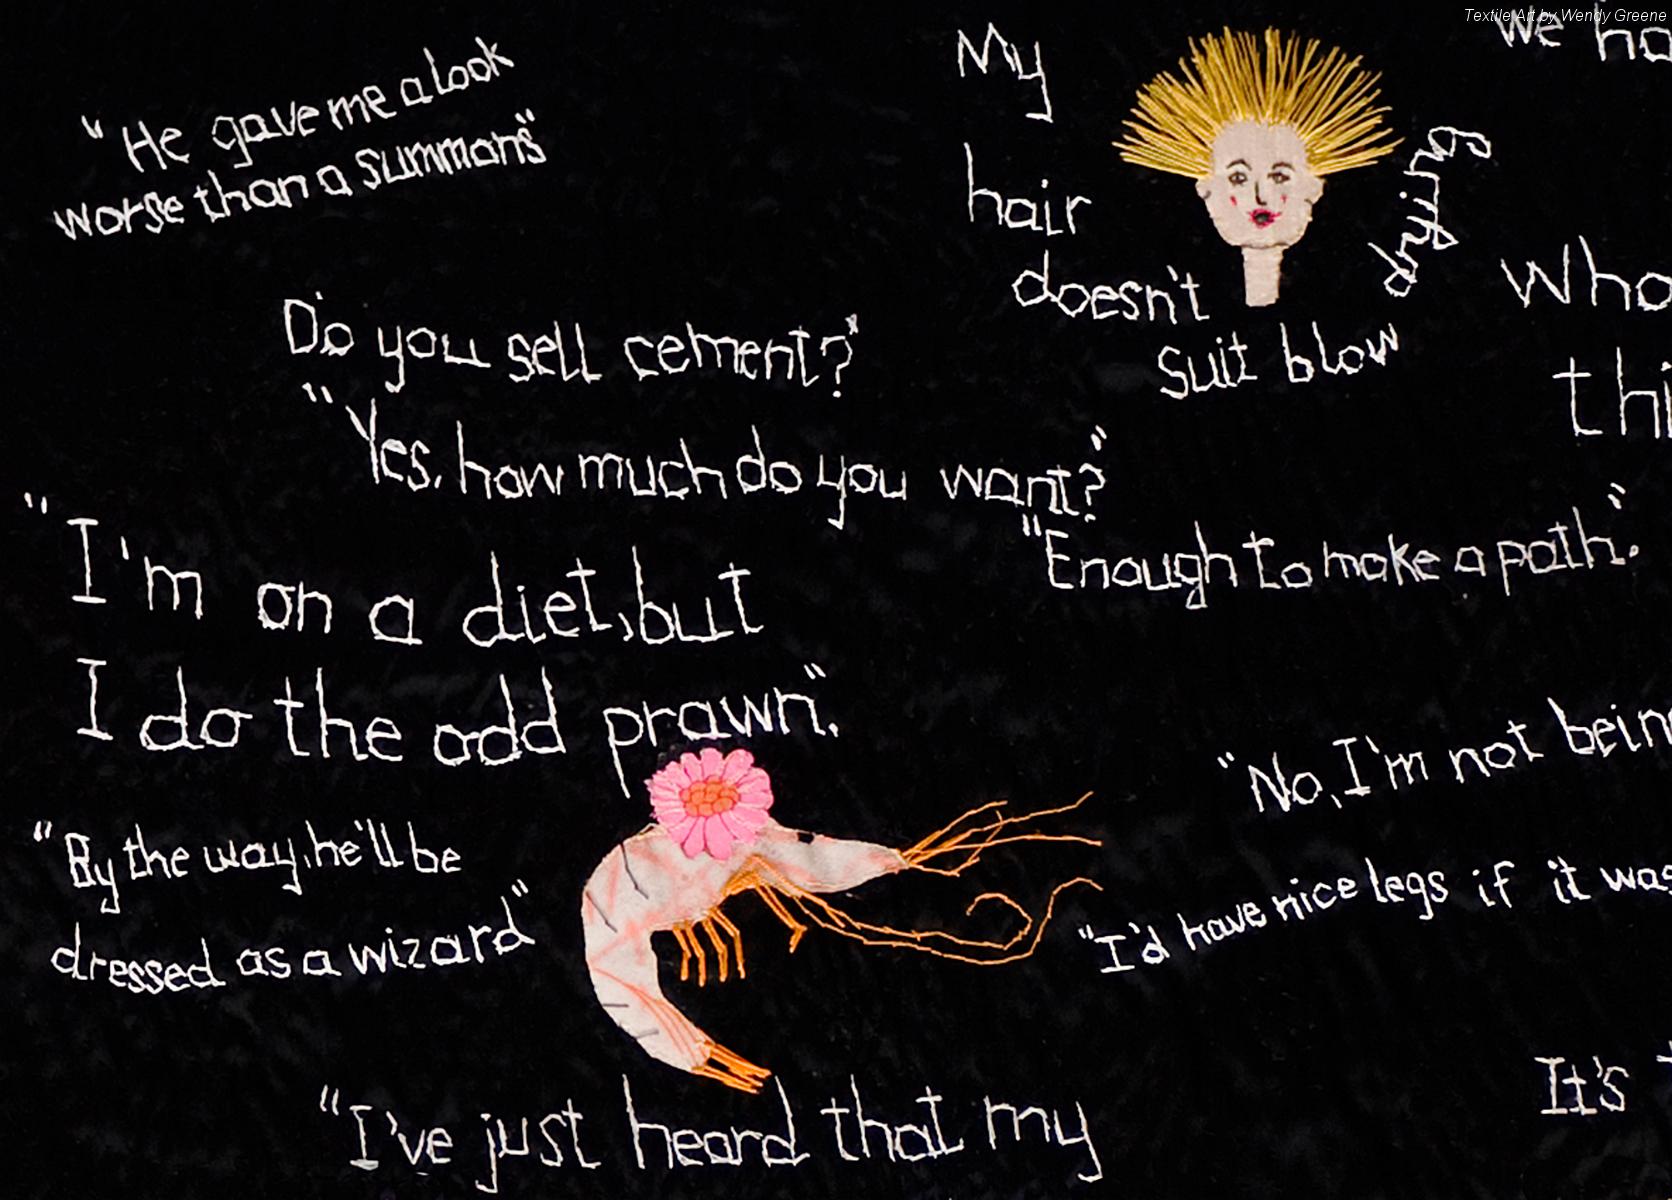 Textile Art by Wendy Greene
"He gave me a look
worse than a summons"
My
hair
doesn't
suit blow
drying
We ha
Do you sell cement?"
"Yes, how much do you want?"
"Enough to make a path".
Who
thi
"I'm on a diet, but
I do the odd prawn".
"By the way, he'll be
dressed as a wizard"
"No, I'm not bein
"I'd have nice legs if it was
It's
"I've just heard that my